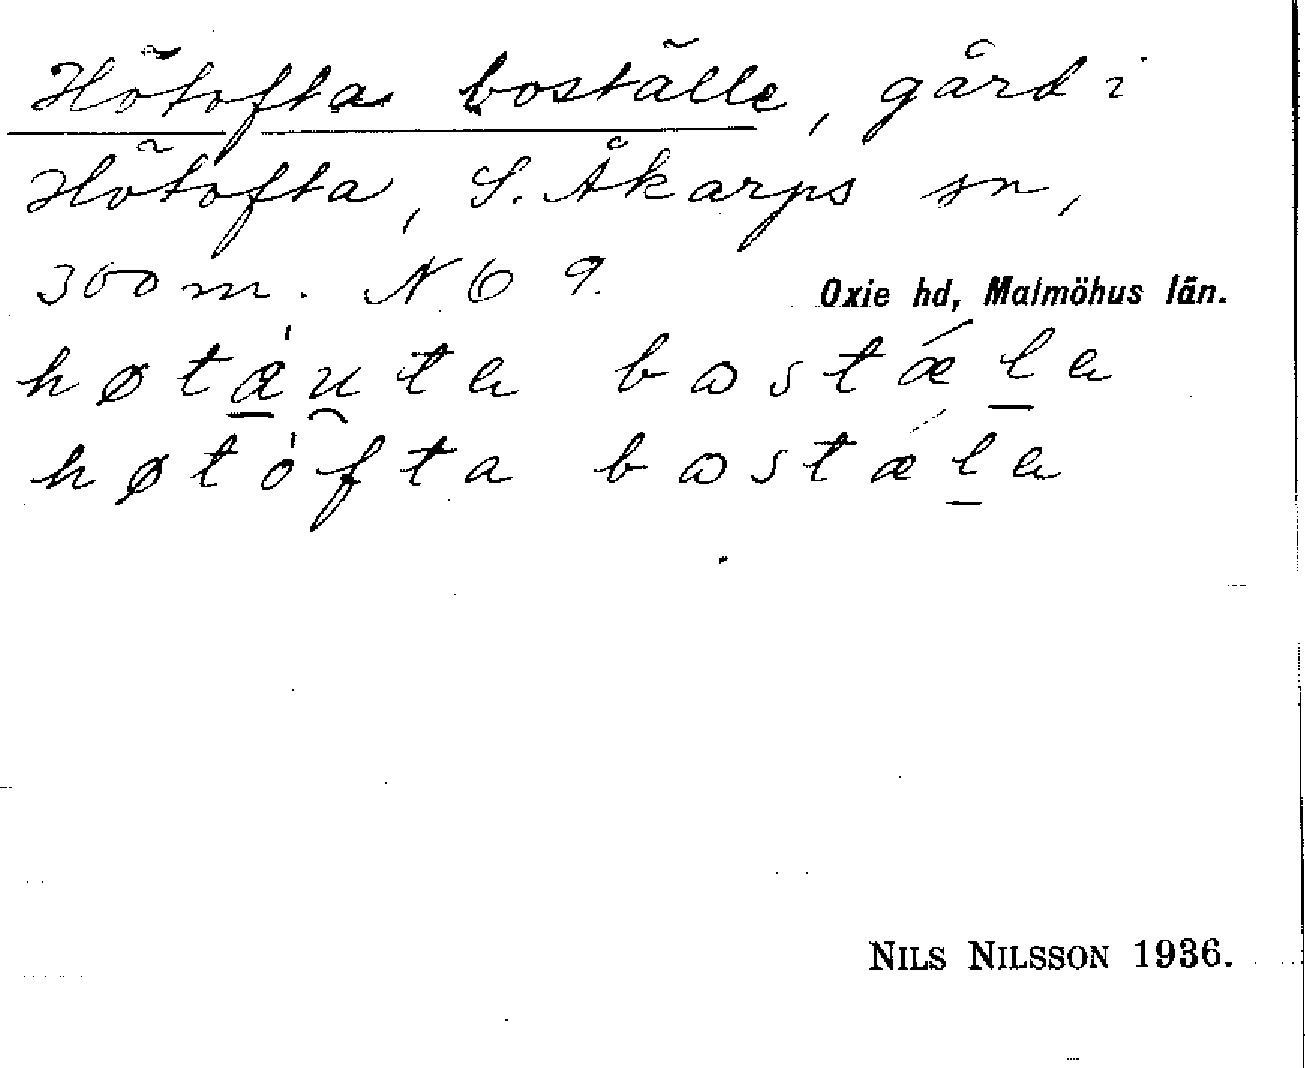 Hötofta boställe, gård i
Hötofta, S. Åkarps sn,
300 m. N 6 9. Oxie hd, Malmöhus län.
høtæ̱̍u̯ta bωstǽḻa
høto̍fta bωstǽḻa
NILS NILSSON 1936.